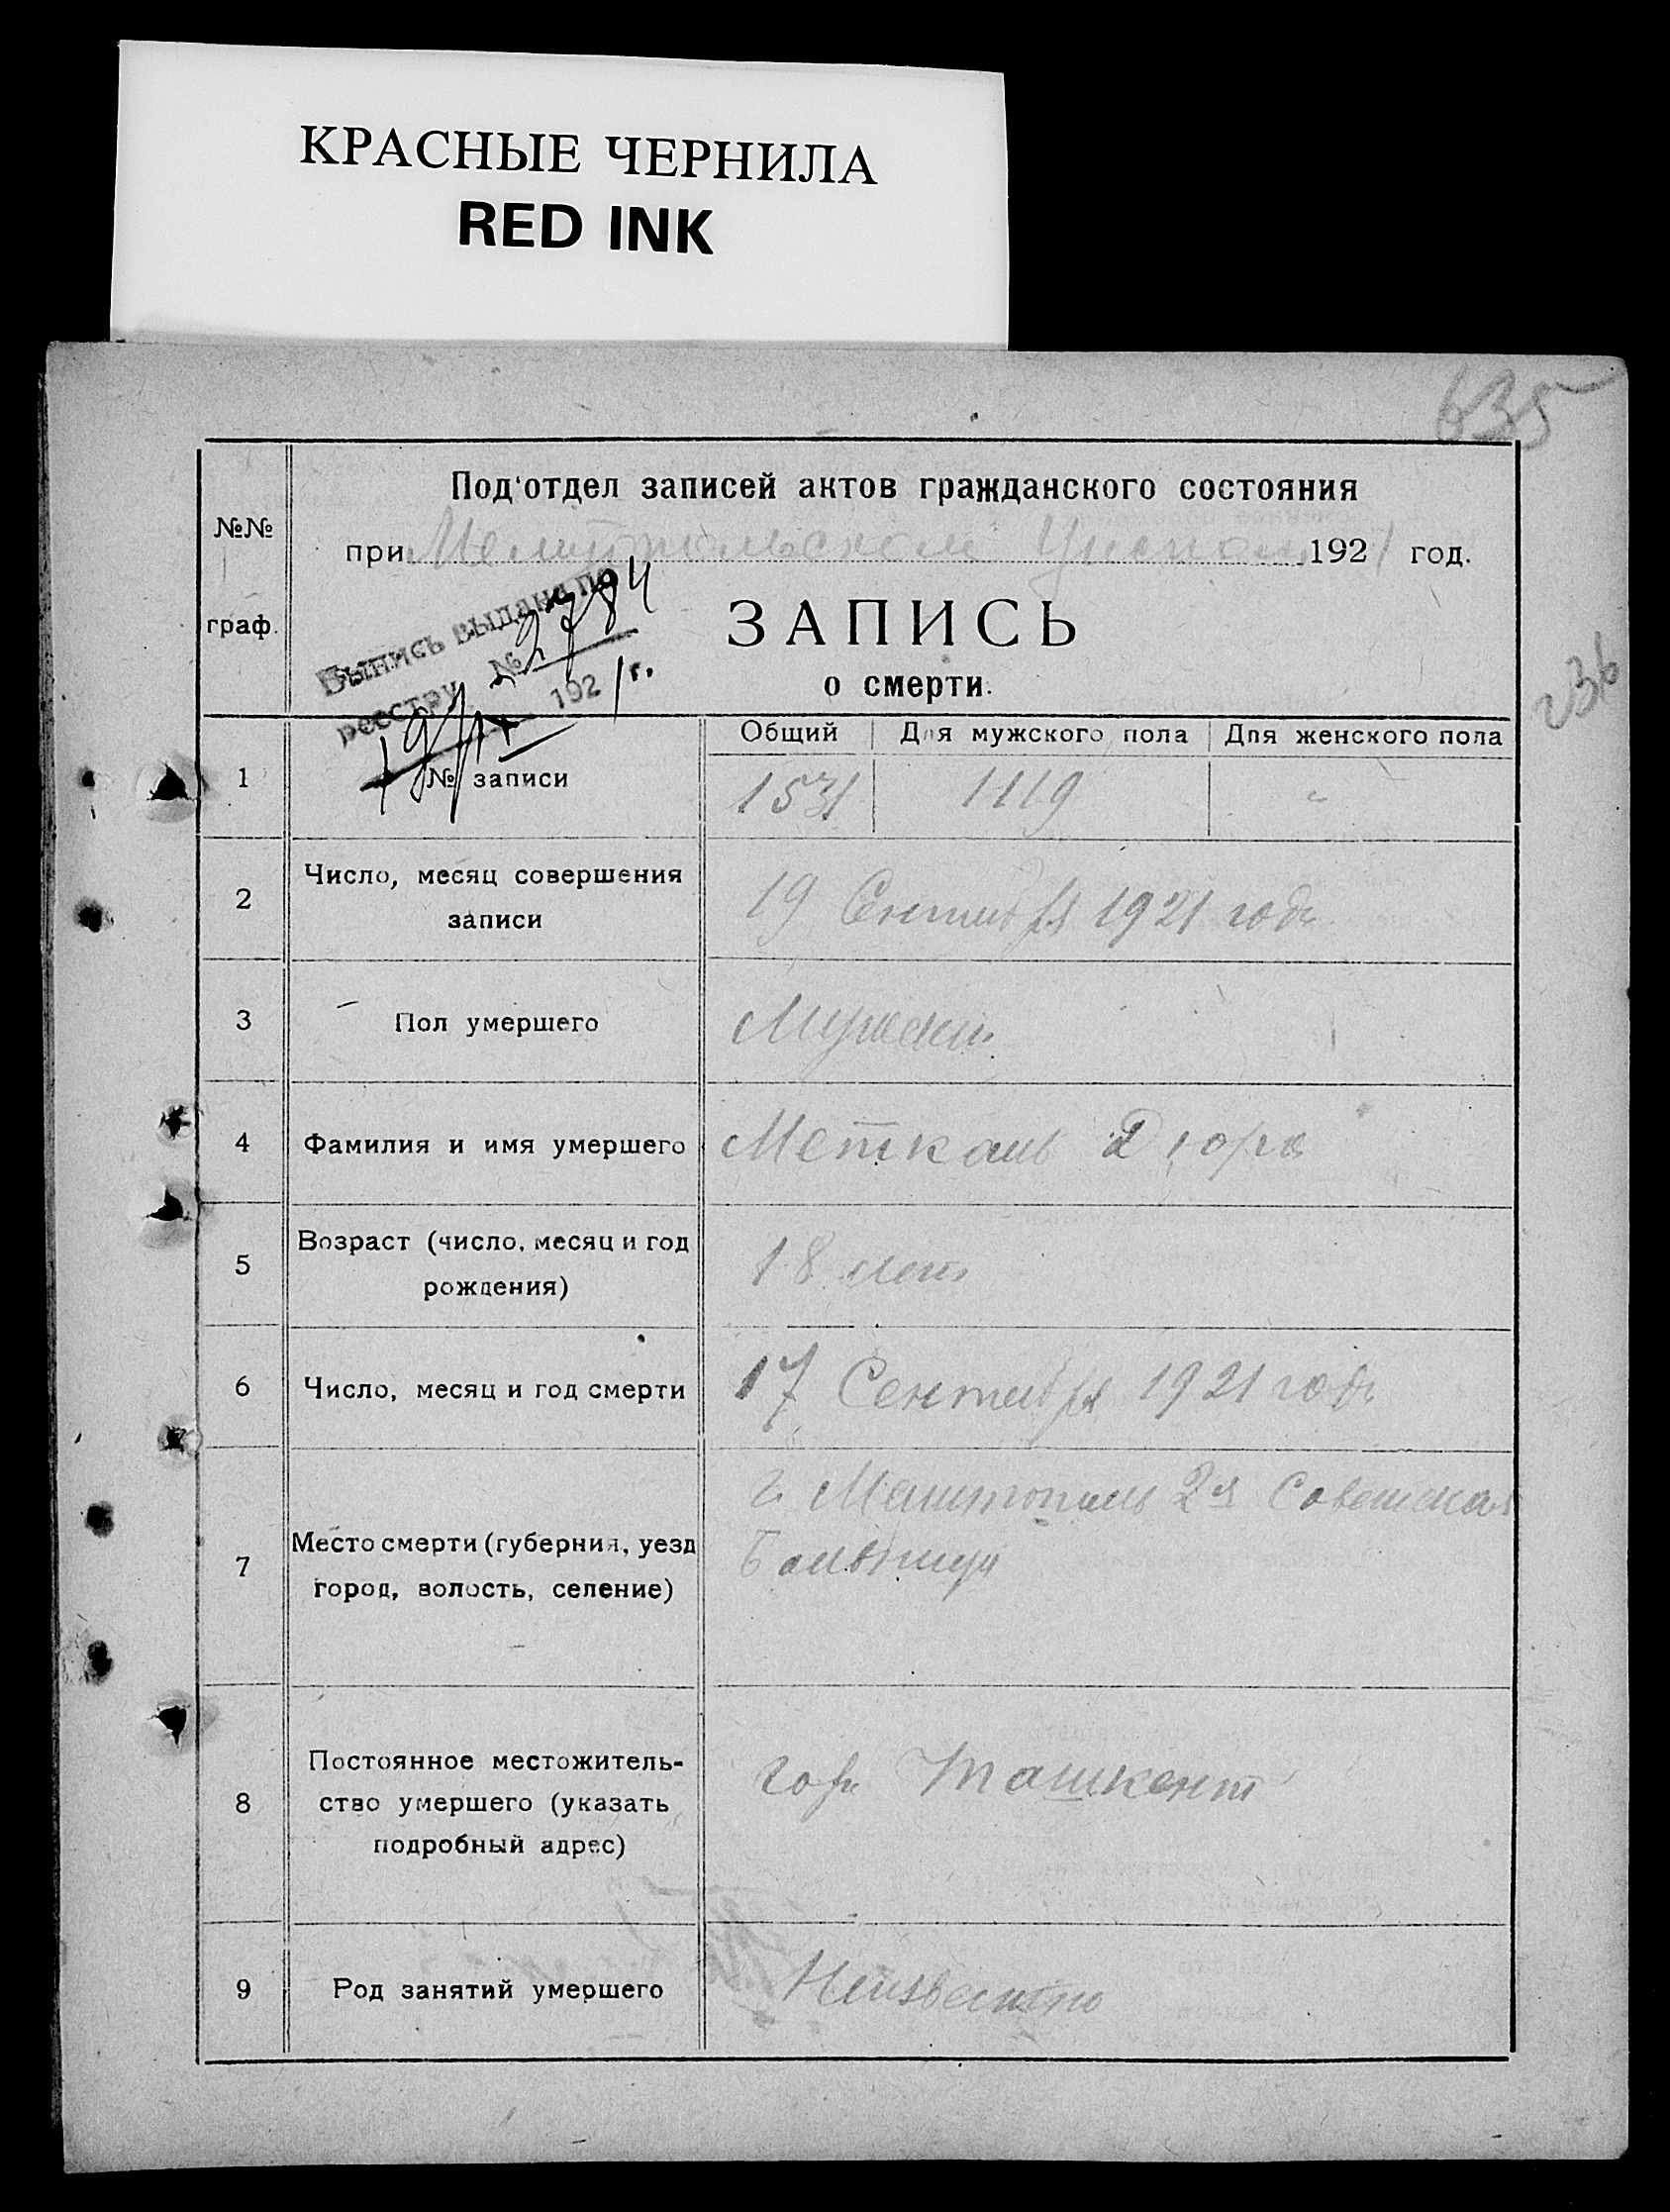 КРАСНЫЕ ЧЕРНИЛА
RED INK
635
Под'отдел записей актов гражданского состояния
№№ граф.
при Мелитопольском Уисполк 1921 год.
Выпись выдана по
реестру № 2784
19/IX 1921 г.
ЗАПИСЬ
о смерти.
236
Общий Для мужского пола Для женского пола
1 № записи 1531 1119 "
2 Число, месяц совершения
записи
19 Сентября 1921 года
3 Пол умершего Мужской
4 Фамилия и имя умершего Меткаль Дюра
5 Возраст (число, месяц и год
рождения)
18 лет
6 Число, месяц и год смерти 17 Сентября 1921 года
7 Место смерти (губерния, уезд
город, волость, селение)
г. Мелитополь 2я Советская
Больница
8 Постоянное местожитель-
ство умершего (указать
подробный адрес)
гор. Ташкент
9 Род занятий умершего Неизвестно